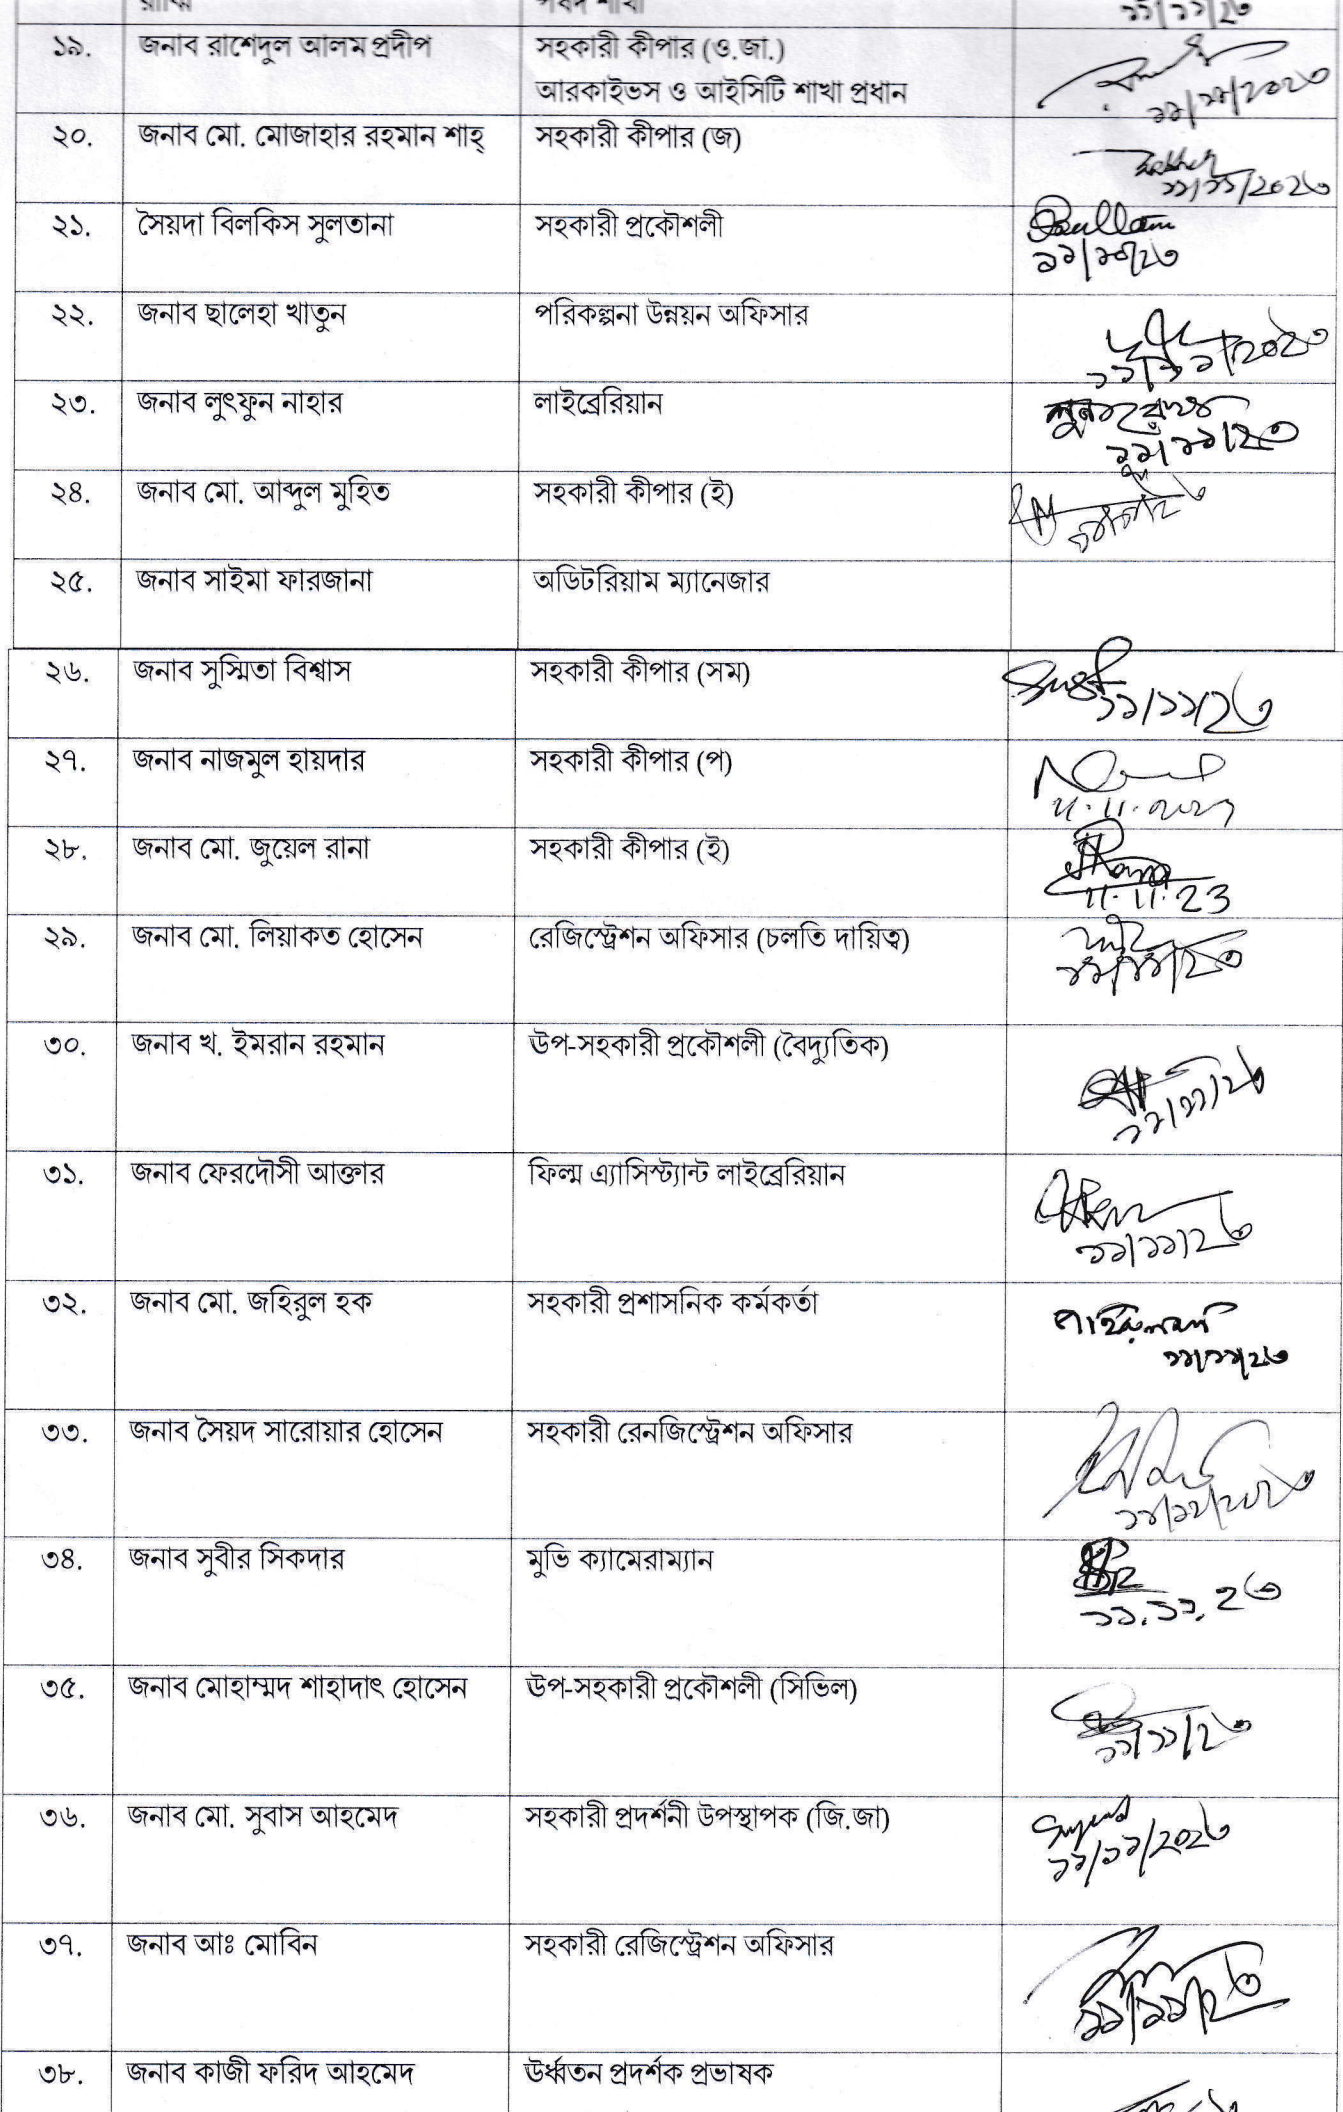 ১১/১১/২৩
১৯. জনাব রাশেদুল আলম প্রদীপ সহকারী কীপার (ও.জা.)
আরকাইভস ও আইসিটি শাখা প্রধান
১১/১১/২০২৩
২০. জনাব মো. মোজাহার রহমান শাহ্ সহকারী কীপার (জ)
১১/১১/২০২৩
২১. সৈয়দা বিলকিস সুলতানা সহকারী প্রকৌশলী
২২. জনাব ছালেহা খাতুন পরিকল্পনা উন্নয়ন অফিসার
১১/১১/২০২৩
২৩. জনাব লুৎফুন নাহার লাইব্রেরিয়ান
১১/১১/২৩
২৪. জনাব মো. আব্দুল মুহিত সহকারী কীপার (ই)
২৫. জনাব সাইমা ফারজানা অডিটরিয়াম ম্যানেজার
২৬. জনাব সুস্মিতা বিশ্বাস সহকারী কীপার (সম)
১১/১১/২৩
২৭. জনাব নাজমুল হায়দার সহকারী কীপার (প)
11.11.2023
২৮. জনাব মো. জুয়েল রানা সহকারী কীপার (ই)
11.11.23
২৯. জনাব মো. লিয়াকত হোসেন রেজিস্ট্রেশন অফিসার (চলতি দায়িত্ব)
১১/১১/২৩
৩০. জনাব খ. ইমরান রহমান উপ-সহকারী প্রকৌশলী (বৈদ্যুতিক)
১১/১১/২৩
৩১. জনাব ফেরদৌসী আক্তার ফিল্ম এ্যাসিস্ট্যান্ট লাইব্রেরিয়ান
১১/১১/২৩
৩২. জনাব মো. জহিরুল হক সহকারী প্রশাসনিক কর্মকর্তা
১১/১১/২৩
৩৩. জনাব সৈয়দ সারোয়ার হোসেন সহকারী রেনজিস্ট্রেশন অফিসার
১১/১১/২০২৩
৩৪. জনাব সুবীর সিকদার মুভি ক্যামেরাম্যান
১১.১১.২৩
৩৫. জনাব মোহাম্মদ শাহাদাৎ হোসেন উপ-সহকারী প্রকৌশলী (সিভিল)
১১/১১/২৩
৩৬. জনাব মো. সুবাস আহমেদ সহকারী প্রদর্শনী উপস্থাপক (জি.জা)
১১/১১/২০২৩
৩৭. জনাব আঃ মোবিন সহকারী রেজিস্ট্রেশন অফিসার
১১/১১/২৩
৩৮. জনাব কাজী ফরিদ আহমেদ উর্ধ্বতন প্রদর্শক প্রভাষক